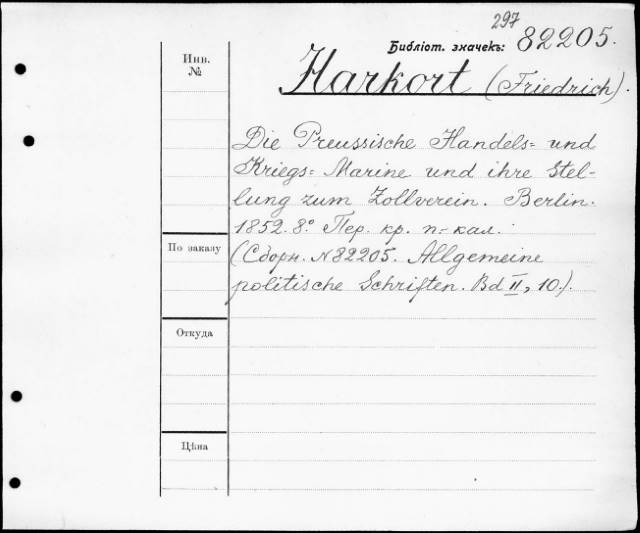 297
Библіот. значекъ: 82205.
Инв.
№
Harkort (Friedrich).
Die Preussische Handels= und
Kriegs= Marine und ihre Stel-
lung zum Zollverein. Berlin.
1852. 8.° Пер. кр. п.-кал.
По заказу
(Сборн. №82205. Allgemeine
politische Schriften. Bd II, 10.).
Откуда
Цѣна